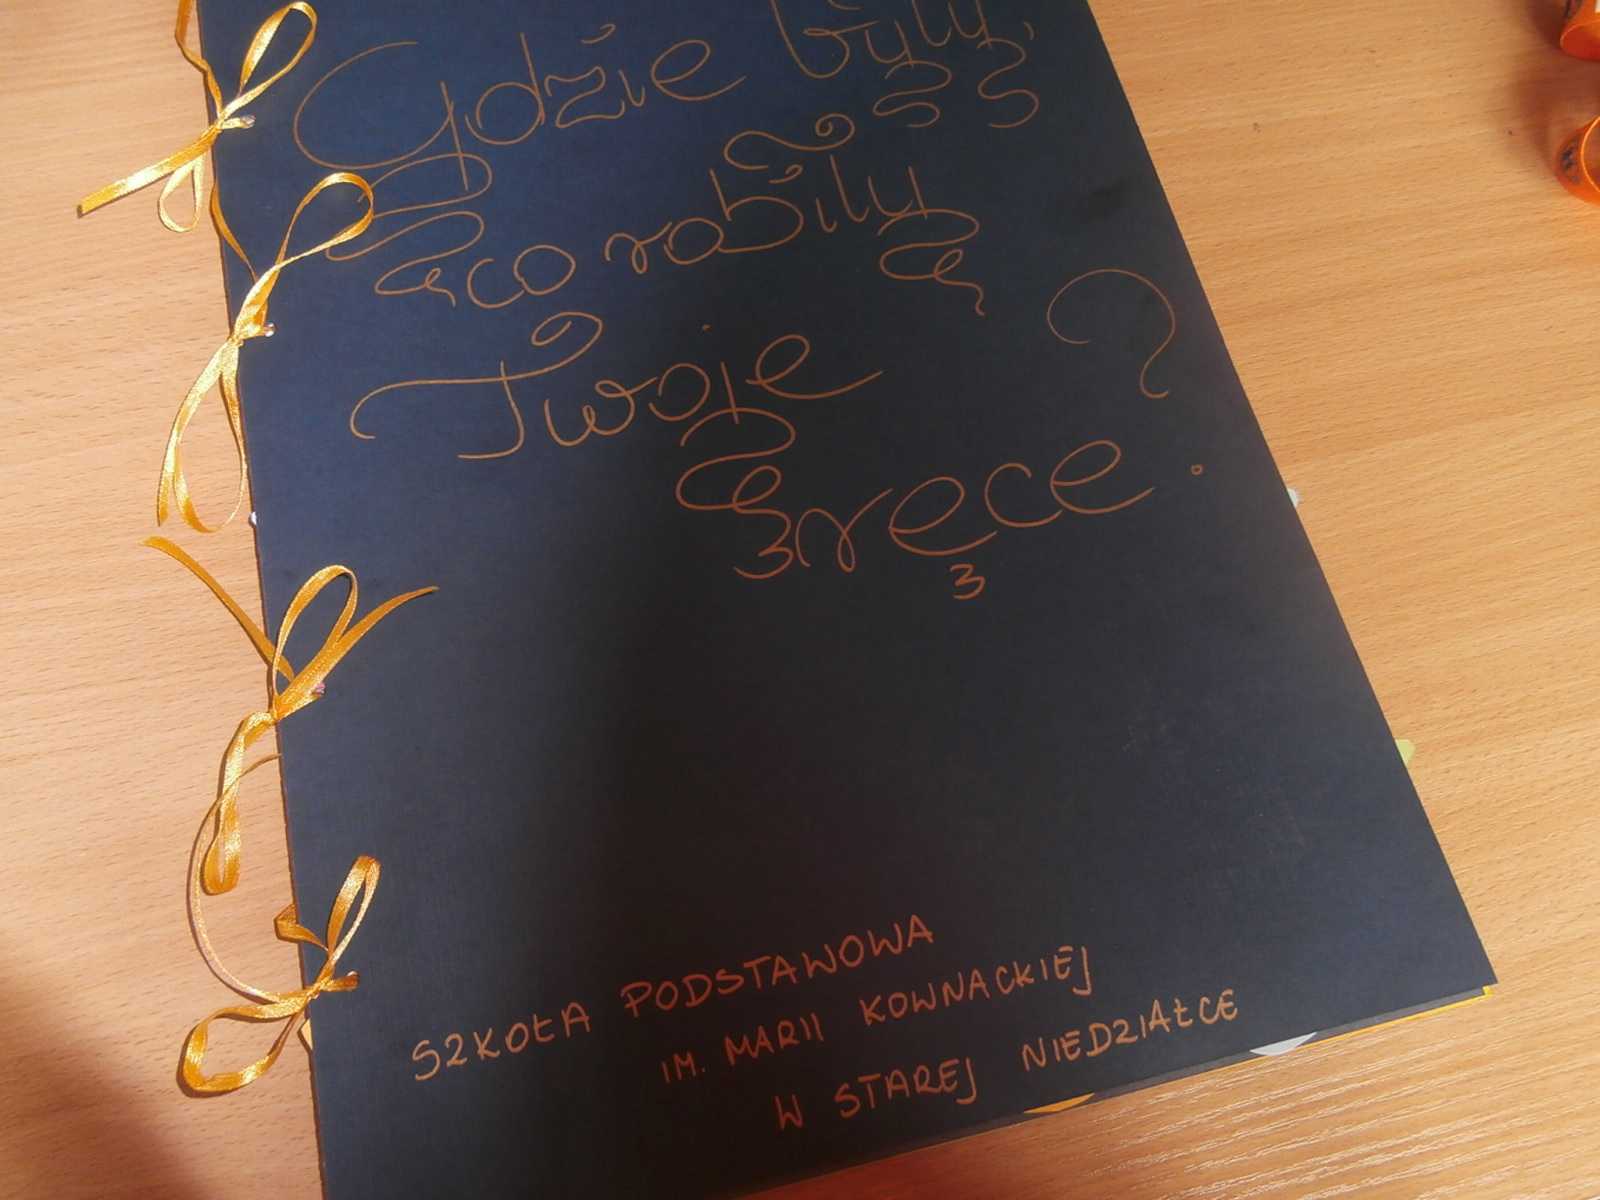 Gdzie były,
co robiły
Twoje
ręce?
SZKOŁA PODSTAWOWA
IM. MARII KOWNACKIEJ
W STAREJ NIEDZIAŁCE